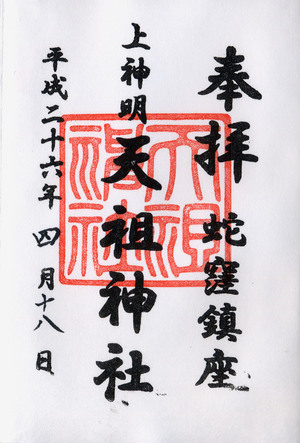 奉拝 蛇窪鎮座
上神明 天祖神社
平成二十六年 四月十八日
天祖神社